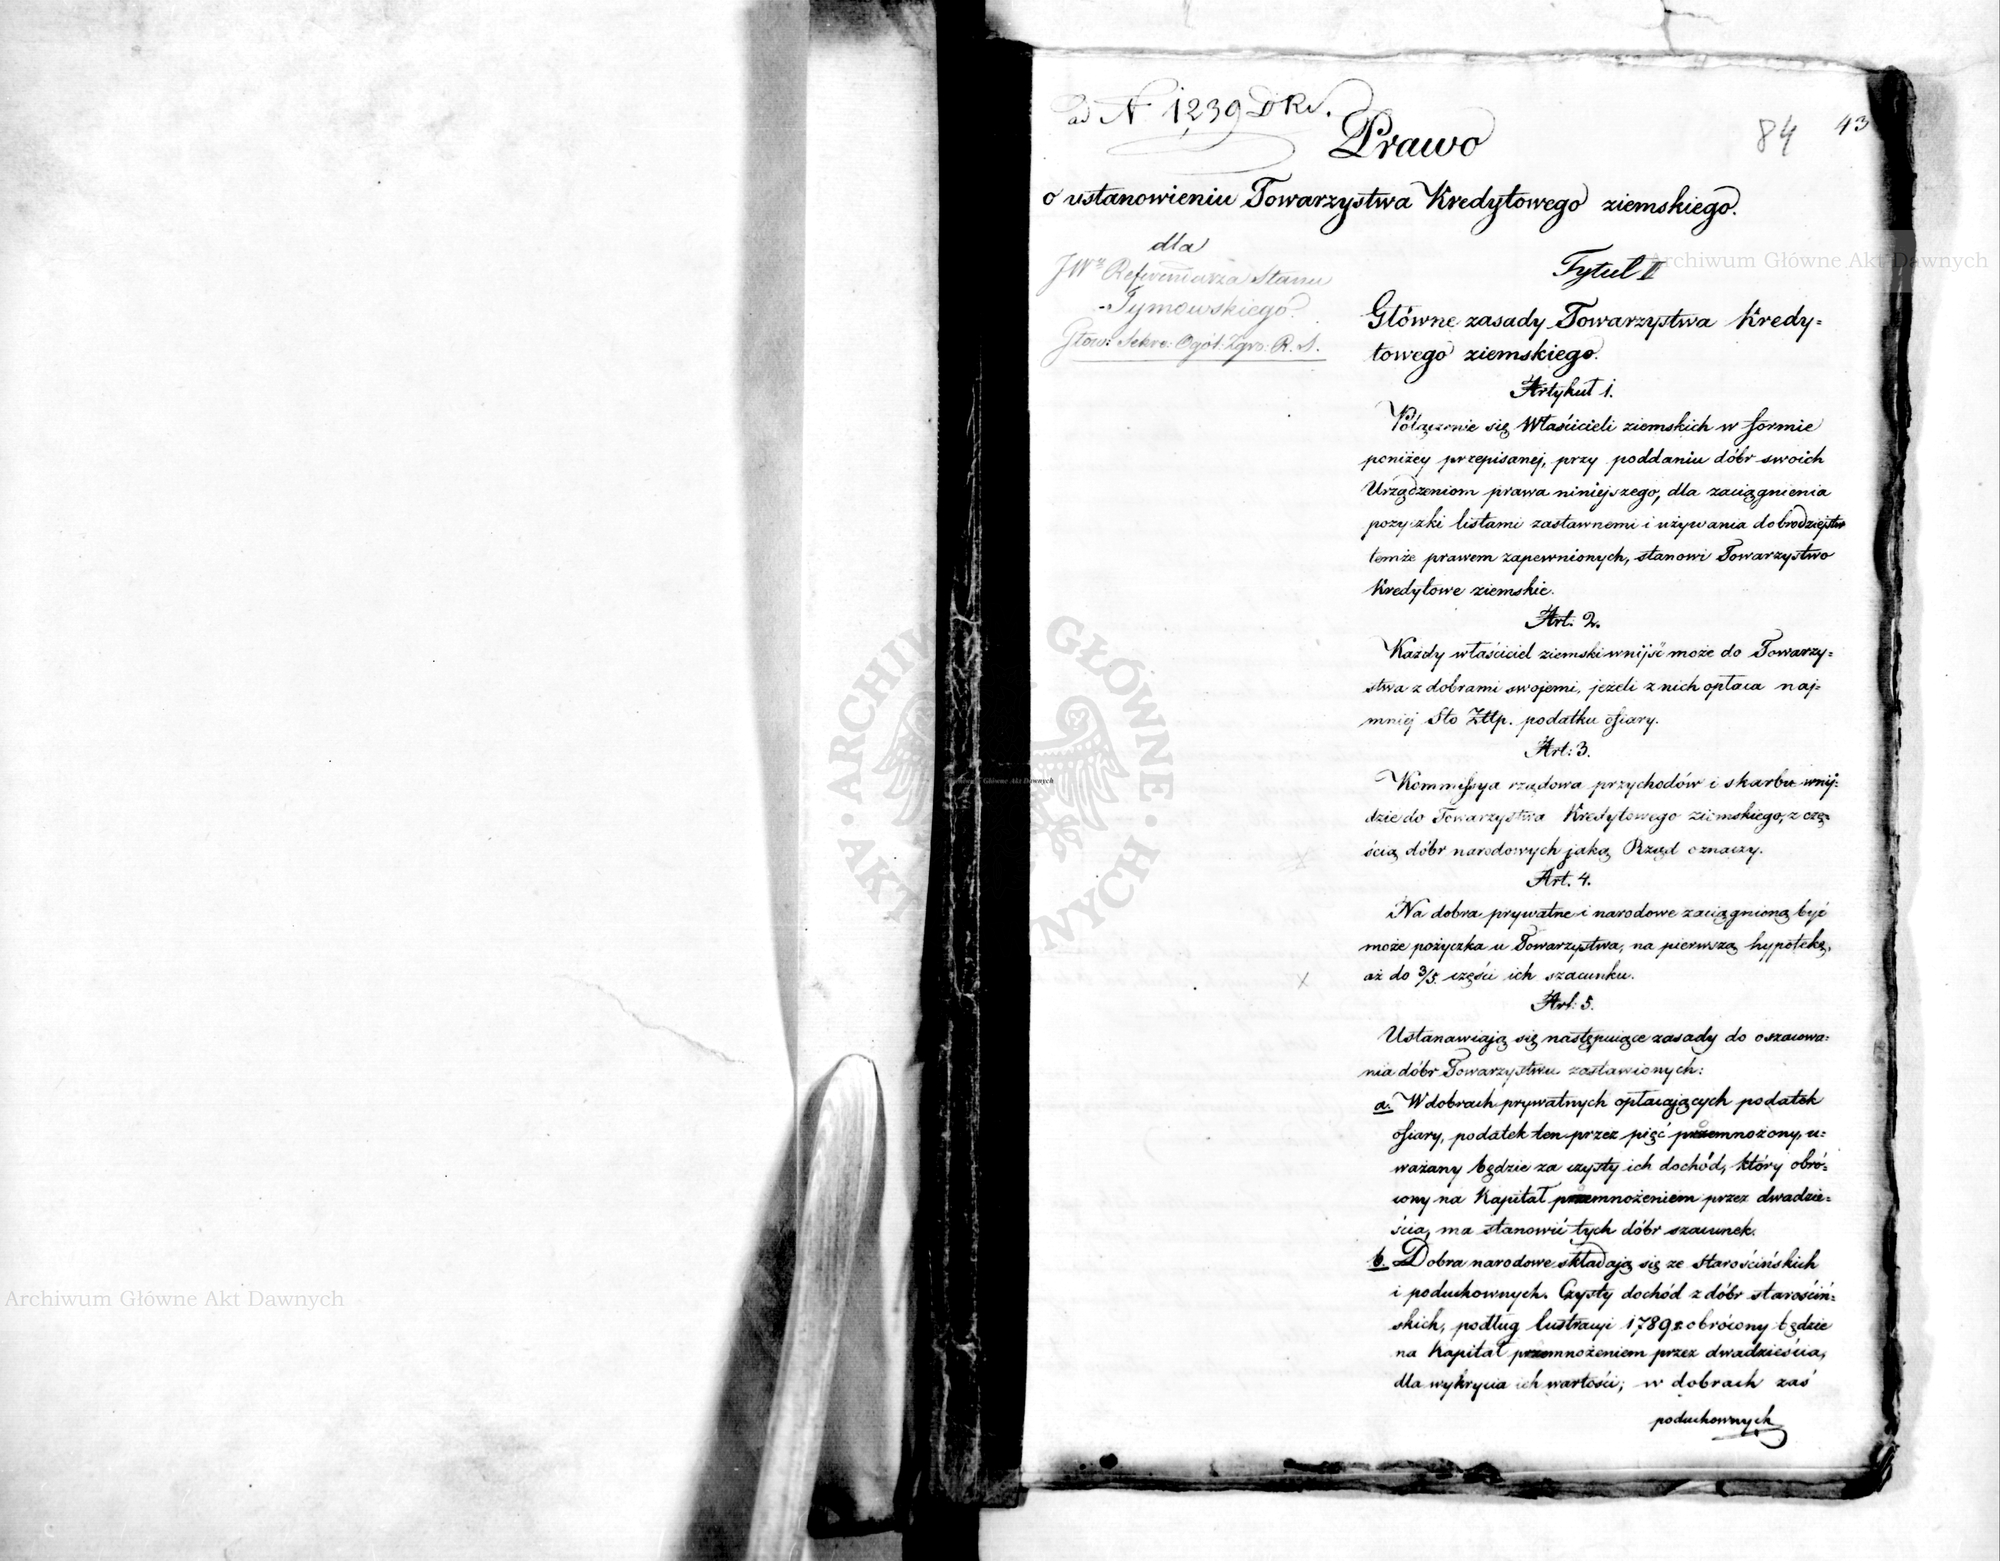 ad N. 1239 DKr.
84
43
Prawo
o ustanowieniu Towarzystwa Kredytowego ziemskiego.
dla
JWo Referendarza Stanu
Tymowskiego
Sekre: Ogól: Zgro: R. S.
Tytuł I
Główne zasady Towarzystwa Kredy=
towego ziemskiego.
Artykuł 1.
Połączenie się Właścicieli ziemskich w formie
poniżey przepisanej, przy poddaniu dóbr swoich
Urządzeniom prawa niniejszego, dla zaciągnienia
pożyczki listami zastawnemi i używania dobrodziejstw
temże prawem zapewnionych, stanowi Towarzystwo
Kredytowe ziemskie.
Art: 2.
Każdy właściciel ziemski wnijść może do Towarzy=
stwa z dobrami swojemi, jeżeli z nich opłaca naj=
mniej Sto Złłp. podatku ofiary.
Art: 3.
Kommissya rządowa przychodów i skarbu wnij=
dzie do Towarzystwa Kredytowego ziemskiego, z czę=
ścią dóbr narodowych jaką Rząd oznaczy.
Art. 4.
Na dobra prywatne i narodowe zaciągnioną być
może pożyczka u Towarzystwa, na pierwszą hypotekę,
aż do 3/5. części ich szacunku.
Art: 5.
Ustanawiają się następujące zasady do oszacowa=
nia dóbr Towarzystwu zastawionych:
a. W dobrach prywatnych opłacających podatek
ofiary, podatek ten przez pięć przemnożony, u=
ważany będzie za czysty ich dochód, który obró=
cony na Kapitał przemnożeniem przez dwadzie=
ścia, ma stanowić tych dóbr szacunek.
b. Dobra narodowe składają się ze starościńskich
i poduchownych. Czysty dochód z dóbr starościń=
skich, podług lustracyi 1789 r. obrócony będzie
na Kapitał przemnożeniem przez dwadzieścia,
dla wykrycia ich wartości; w dobrach zaś
poduchownych
Archiwum Główne Akt Dawnych
Archiwum Główne Akt Dawnych
Archiwum Główne Akt Dawnych